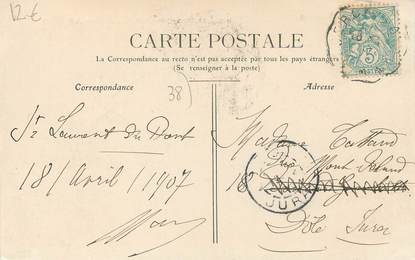 12€
CARTE POSTALE
La Correspondance au recto n'est pas acceptée par tous les pays étrangers
(Se renseigner à la poste)
Correspondance
38)
Adresse
St Laurent du Pont
18/Avril/1907
Madame
18
Mont Roland
Dôle Jura
JURA
5